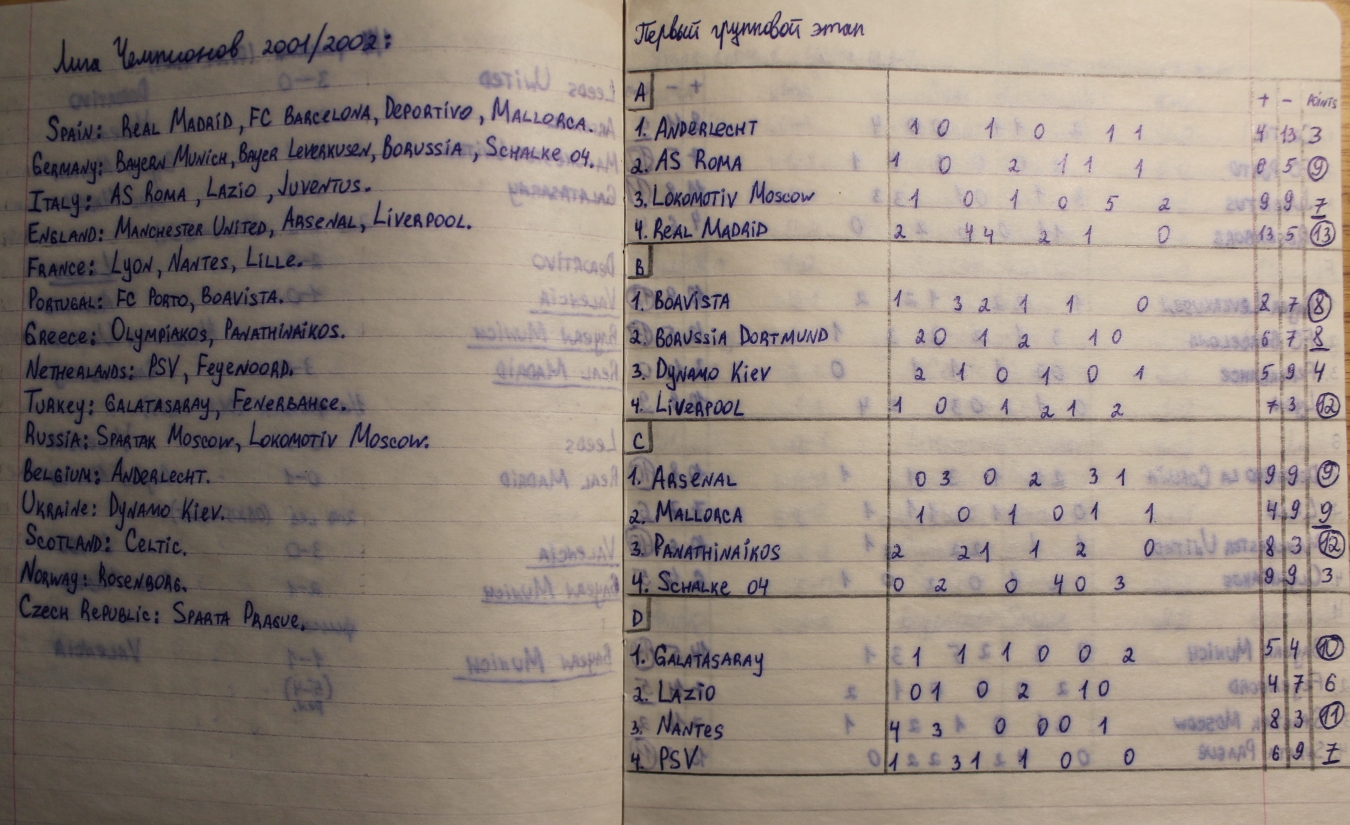 Лига Чемпионов 2001/2002:
Spain: Real Madrid, FC Barcelona, Deportivo, Mallorca.
Germany: Bayern Munich, Bayer Leverkusen, Borussia, Schalke 04.
Italy: AS Roma, Lazio, Juventus.
England: Manchester United, Arsenal, Liverpool.
France: Lyon, Nantes, Lille.
Portugal: FC Porto, Boavista.
Greece: Olympiakos, Panathinaikos.
Netherlands: PSV, Feyenoord.
Turkey: Galatasaray, Fenerbahce.
Russia: Spartak Moscow, Lokomotiv Moscow.
Belgium: Anderlecht.
Ukraine: Dynamo Kiev.
Scotland: Celtic.
Norway: Rosenborg.
Czech Republic: Sparta Prague.
Первый групповой этап
A + - Points
1. Anderlecht 1 0 1 0 1 1 4 13 3
2. AS Roma 1 0 2 1 1 1 6 5 9
3. Lokomotiv Moscow 1 0 1 0 5 2 9 9 7
4. Real Madrid 2 4 4 2 1 0 13 5 13
B
1. Boavista 1 3 2 1 1 0 2 7 8
2. Borussia Dortmund 2 0 1 2 1 0 6 7 8
3. Dynamo Kiev 2 1 0 1 0 1 5 9 4
4. Liverpool 1 0 1 2 1 2 7 3 12
C
1. Arsenal 0 3 0 2 3 1 9 9 9
2. Mallorca 1 0 1 0 1 1 4 9 9
3. Panathinaikos 2 2 1 1 2 0 8 3 12
4. Schalke 04 0 2 0 4 0 3 9 9 3
D
1. Galatasaray 1 1 1 0 0 2 5 4 10
2. Lazio 0 1 0 2 1 0 4 7 6
3. Nantes 4 3 0 0 0 1 8 3 11
4. PSV 1 3 1 1 0 0 6 9 7